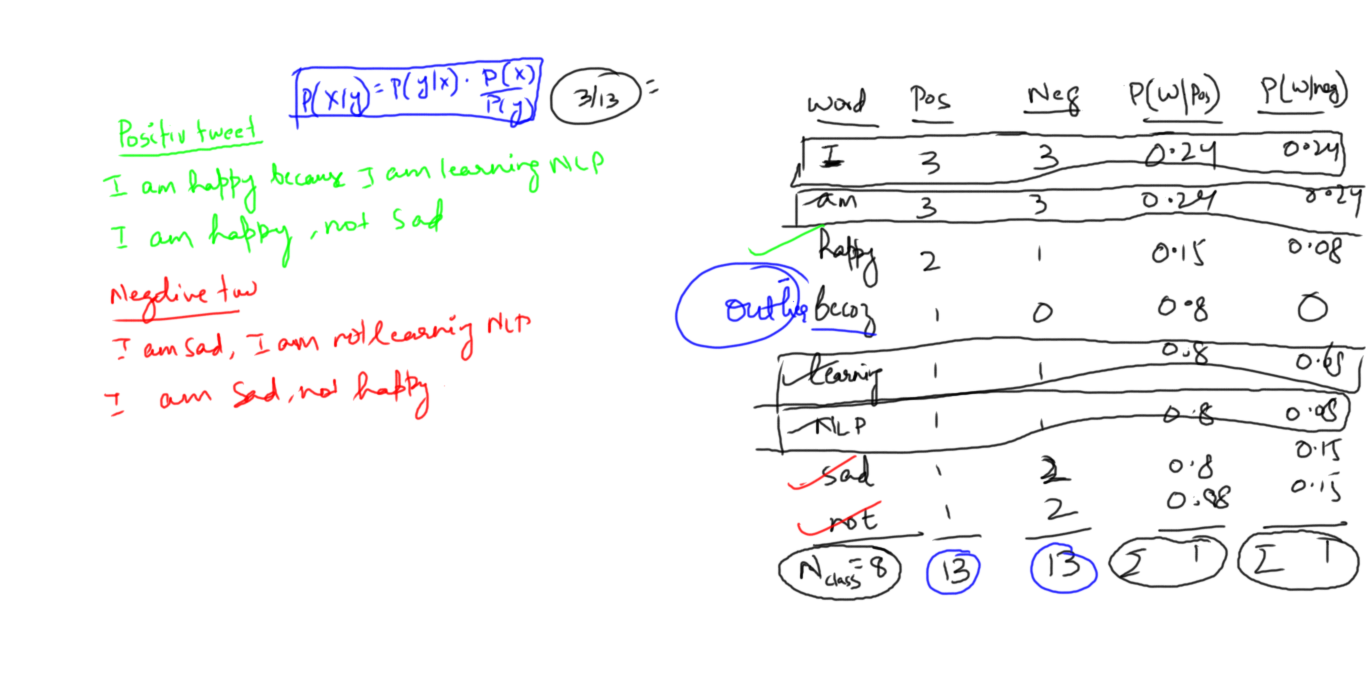 P(x/y) = P(y|x) · P(x) / P(y)
3/13 =
Positiv tweet
I am happy because I am learning NLP
I am happy, not sad
I am sad, I am not learning NLP
I am sad, not happy
word Pos Neg P(W/Pos) P(W/neg)
I 3 3 0.24 0.24
am 3 3 0.24 0.24
happy 2 1 0.15 0.08
becoz 1 0 0.8 0
learning 1 1 0.8
NLP 1 1 0.8 0.08
sad 1 2 0.8 0.15
not 1 2 0.08 0.15
N class = 8 13 13 Σ 1 Σ 1